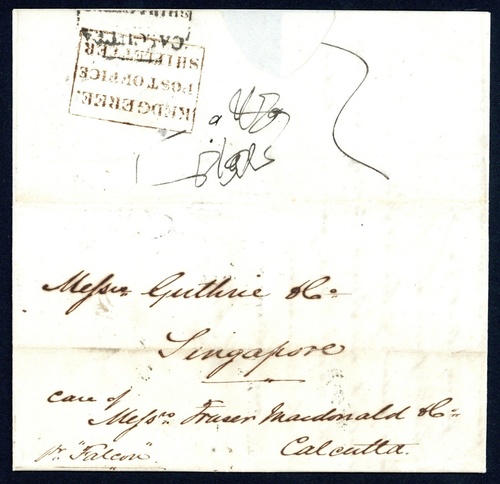 SHIP LETTER
CALCUTTA
KEDGEREE.
POST OFFICE
SHIP LETTER
Messrs Guthrie & Co
Singapore
care of
Messrs Fraser Macdonald & Co
Calcutta.
pr "Falcon"